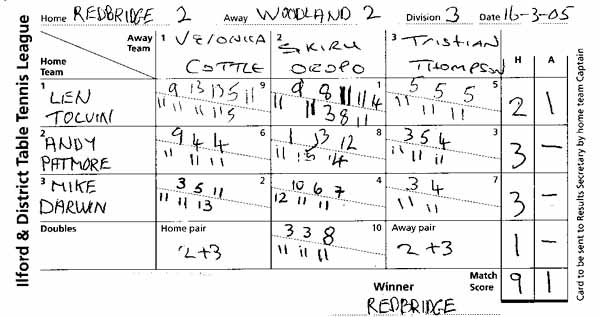 Home REDBRIDGE 2 Away WOODLAND 2 Division 3 Date 16-3-05
Ilford & District Table Tennis League
Away Team 1 VERONICA COTTLE 2 SKIRU OROPO 3 TRISTIAN THOMPSON H A
Home Team
1 LEN TOLVIN 9 1 5 2 1
9 13 13 5 11 9 8 11 11 4 5 5 5
11 11 11 11 5 11 3 8 11 11 11 11
2 ANDY PATMORE 6 8 3 3 –
9 4 4 1 13 12 3 5 4
11 11 11 11 15 14 11 11 11
3 MIKE DARWIN 2 4 7 3 –
3 5 11 10 6 7 3 4
11 11 13 12 11 11 11 11
Doubles Home pair 10 Away pair 1 –
2+3 3 3 8 2+3
11 11 11
Match Score 9 1
Winner REDBRIDGE
Card to be sent to Results Secretary by home team Captain